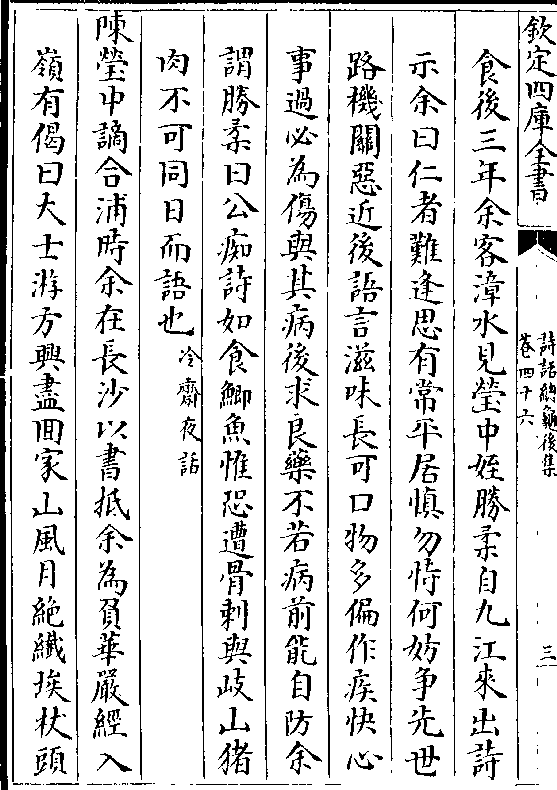 欽定四庫全書
詩話總龜後集
卷四十六
三
食後三年余客漳水見瑩中姪勝柔自九江來出詩
示余曰仁者難逢思有常平居慎勿恃何妨争先世
路機關惡近後語言滋味長可口物多偏作疾快心
事過必為傷與其病後求良藥不若病前能自防余
謂勝柔曰公痴詩如食鯽魚惟恐遭骨刺與岐山猪
肉不可同日而語也冷齋夜話
陳瑩中謫合浦時余在長沙以書抵余為負華嚴經入
嶺有偈曰大士游方興盡囬家山風月絶纎埃杖頭